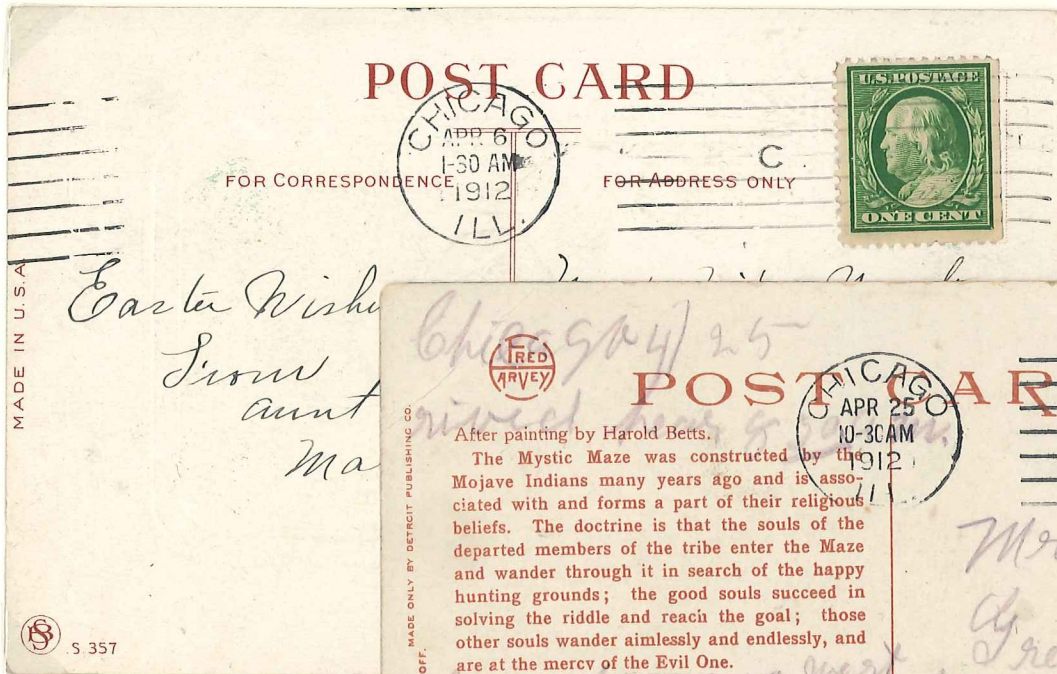 POST CARD
CHICAGO
APR 6
1-30 AM
1912
ILL.
C
U.S. POSTAGE
ONE CENT
FOR CORRESPONDENCE
FOR ADDRESS ONLY
MADE IN U.S.A
Easter Wishe
From
aunt
Ma
S. 357
Chicago 4/25
FRED
HARVEY
POST CAR
CHICAGO
APR 25
10-30AM
1912
ILL
After painting by Harold Betts.
The Mystic Maze was constructed by the
Mojave Indians many years ago and is asso-
ciated with and forms a part of their religious
beliefs. The doctrine is that the souls of the
departed members of the tribe enter the Maze
and wander through it in search of the happy
hunting grounds; the good souls succeed in
solving the riddle and reach the goal; those
other souls wander aimlessly and endlessly, and
are at the mercy of the Evil One.
OFF. MADE ONLY BY DETROIT PUBLISHING CO.